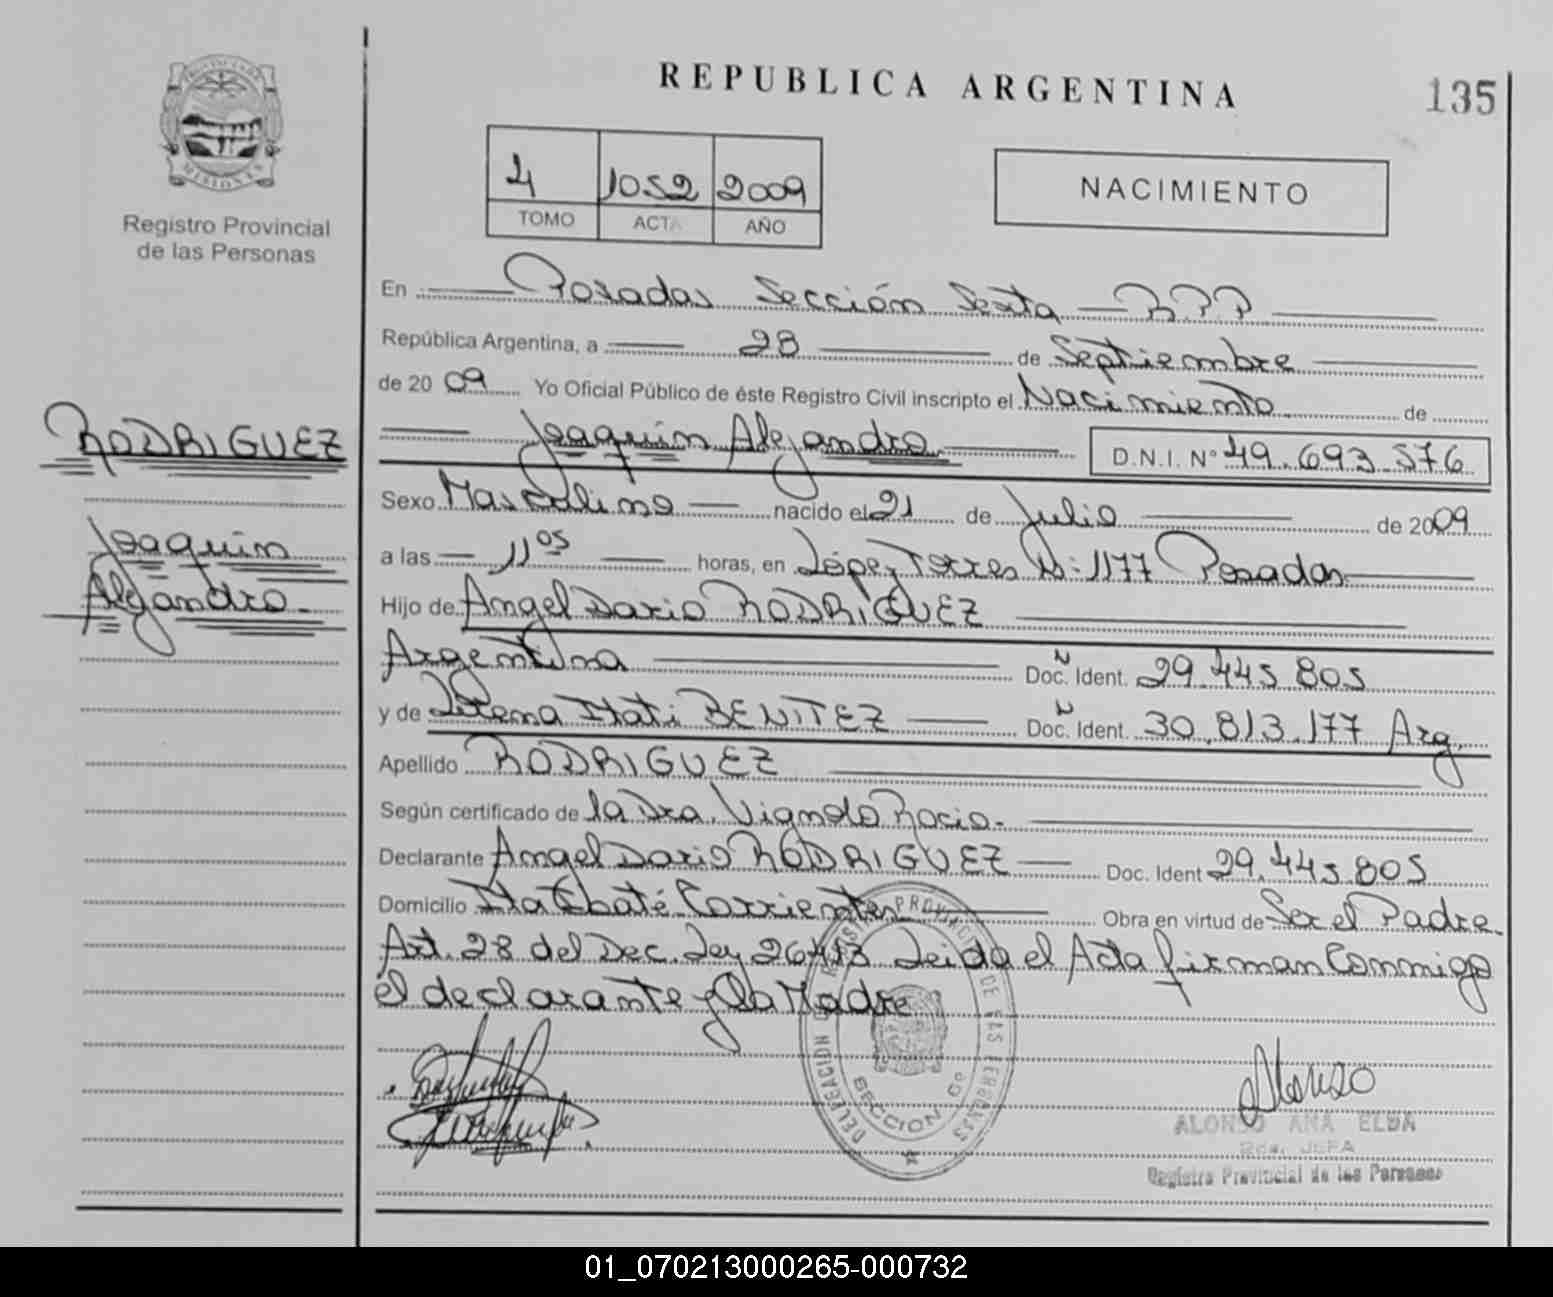 REPUBLICA ARGENTINA
135
PROVINCIA DE
MISIONES
Registro Provincial
de las Personas
4 1052 2009
TOMO ACTA AÑO
NACIMIENTO
En Posadas Sección Sexta R.P.P
República Argentina, a 28 de Septiembre
de 20 09 Yo Oficial Público de éste Registro Civil inscripto el Nacimiento de
Joaquin Alejandro D.N.I. N° 49.693.576
RODRIGUEZ
Joaquin
Alejandro.
Sexo Masculino nacido el 21 de Julio de 2009
a las 11 05 horas, en López Torres N: 1177 Posadas
Hijo de Angel Dario RODRIGUEZ
Argentina Doc. N Ident. 29.445.805
y de Itatí BENITEZ Doc. N Ident. 30.813.177 Arg.
Apellido RODRIGUEZ
Según certificado de la Dra. Vignolo Rocio.
Declarante Angel Dario RODRIGUEZ Doc. Ident 29.445.805
Domicilio Ita Ibaté Corrientes Obra en virtud de Ser el Padre.
Art. 28 del Dec. Ley 26413 Leida el Acta firman Conmigo
el declarante y la Madre
DELEGACION REGISTRO PROVINCIAL DE LAS PERSONAS
SECCION 6º
Alonso
ALONSO ANA ELBA
2da. JEFA
Registro Provincial de las Personas
01_070213000265-000732